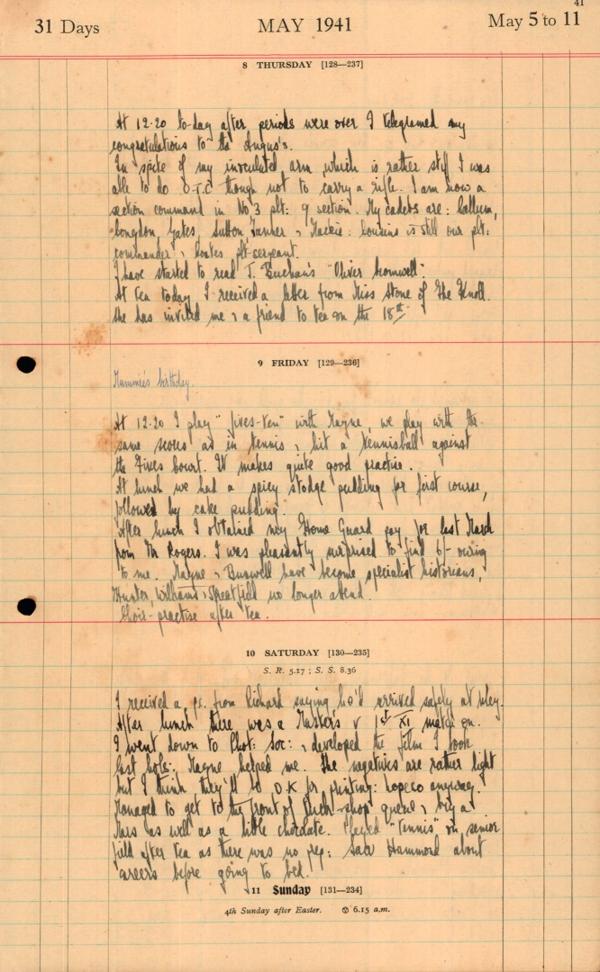 41
31 Days MAY 1941 May 5 to 11
8 THURSDAY [128—237]
At 12.20 to-day after periods were over I telegramed my
congratulations to the Angus's.
In spite of my inoculated arm which is rather stiff I was
able to do O.T.C though not to carry a rifle. I am now a
section command in No 3 plt: 9 section. My cadets are: Callum,
Longdon, Yates, Sutton, Tanner & Mackie: Cousins is still our plt:
commander & plt-sergeant.
I have started to read J. Buchan's "Oliver Cromwell".
At tea today I received a letter from Miss Stone of The Knoll.
She has invited me & a friend to tea on the 18th
9 FRIDAY [129—236]
Mummie's birthday.
At 12.20 I play "fives-ten" with Mayne, we play with the
same scores as in tennis & hit a tennisball against
the Fives Court. It makes quite good practise.
At lunch we had a spicy stodge pudding for first course,
followed by cake pudding.
After lunch I obtained my Home Guard pay for last March
from Mr Rogers. I was pleasantly surprised to find 6/- owing
to me. Mayne & have become specialist historians,
Hunter, Williams & no longer attend.
Choir-practise after tea.
10 SATURDAY [130—235]
S. R. 5.17 ; S. S. 8.36
I received a pc. from Richard saying he'd arrived safely at
After lunch there was a Master's v 1st XI match on.
I went down to Phot: Soc: & developed the film I took
last hols: Mayne helped me. The negatives are rather light
but I think they'll be O.K for printing: anyway.
Managed to get to the front of tuck-shop queue & buy a
Mars as well as a little chocolate. Played "Tennis" on senior
field after tea as there was no prep: Saw Hammond about
careers before going to bed.
11 Sunday [131—234]
4th Sunday after Easter. 6.15 a.m.